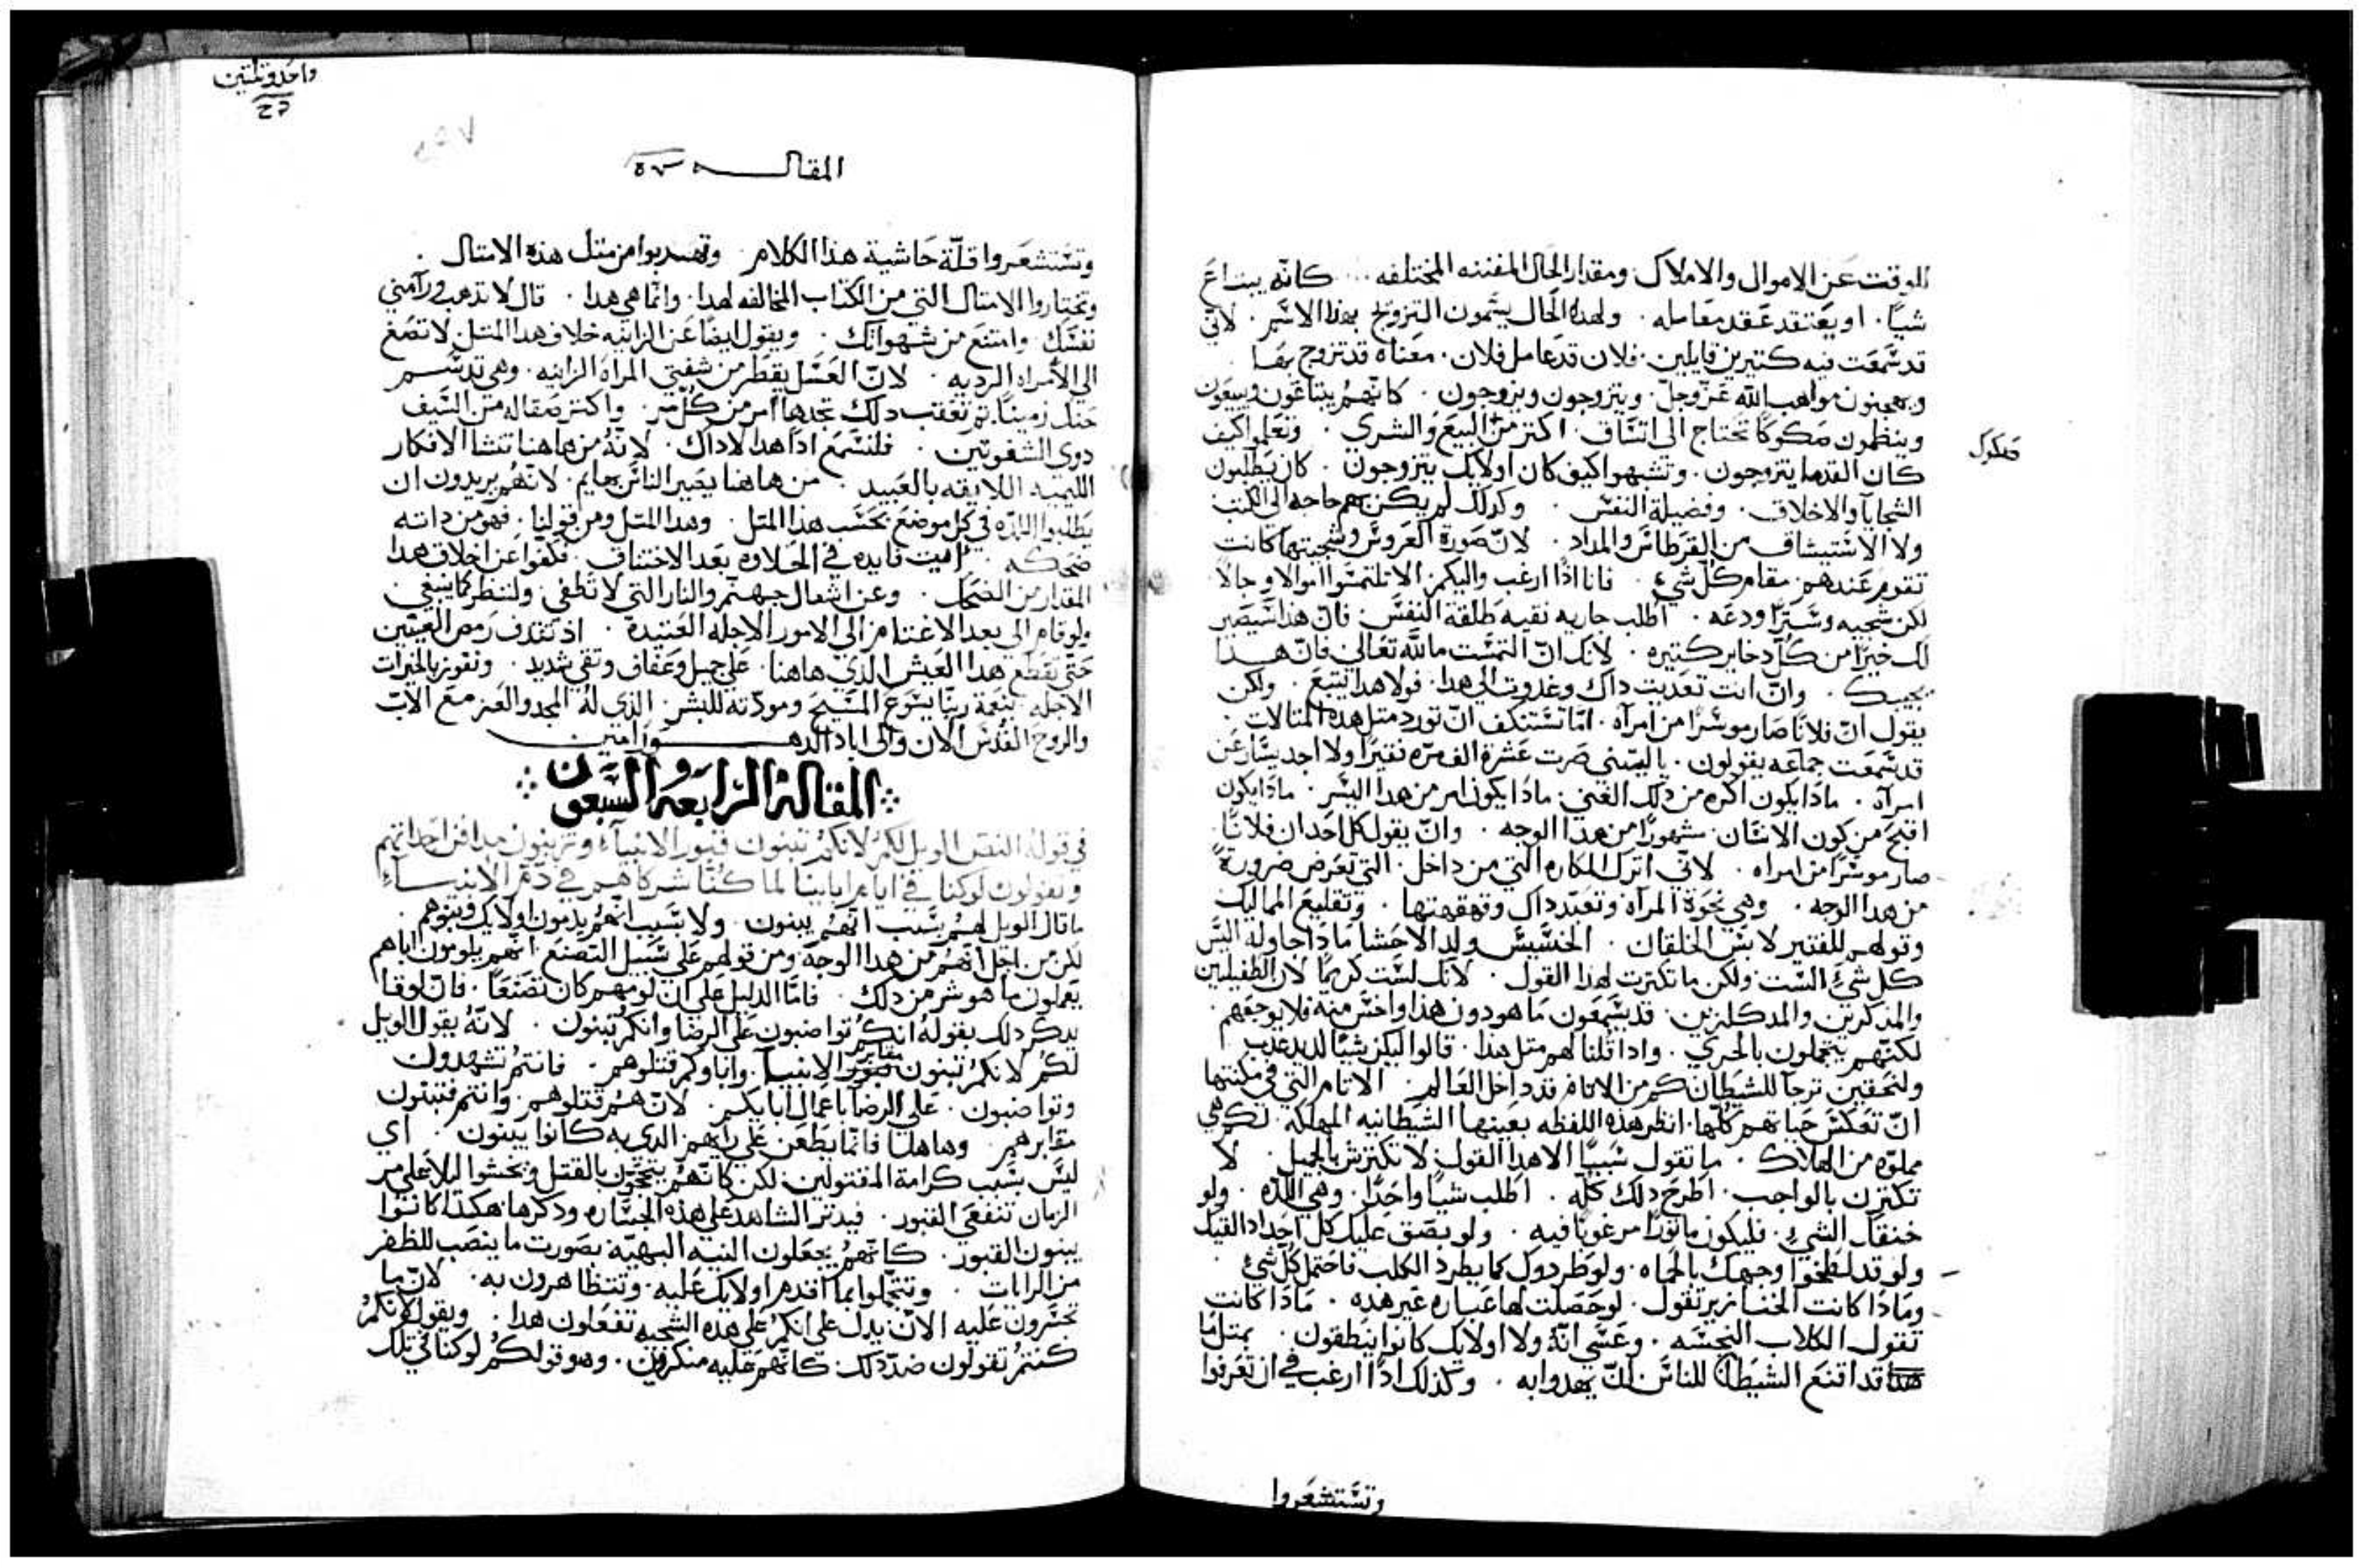 الوقت عن الاموال والاملاك ومقدار الحال المفننه المختلفه كانه يبتاع
شيًا . او يعتقد عقد معامله . ولهذا الحال يسمون التزويج بهذا الاسم . لاني
قد سمعت فيه كتيرين قايلين . فلان قد عامل فلان . معناه قد تزوج بها .
ويهجنون مواهب الله عز وجل . ويتزوجون ويزوجون . كانهم يبتاعون ويبيعون
وينظمون صكوكًا تحتاج الى اتساق اكتر من البيع والشرى . وتعلموا كيف
صكوك
كان القدما يتزوجون . وتشبهوا كيف كان اولايك يتزوجون . كان يطلبون
السجايا والاخلاق . وفضيلة النفس . وكدلك لم يكن بهم حاجه الى الكتب
ولا الاستيشاق من القرطاس والمداد . لان صورة العروس وسجيتها كانت
تقوم عندهم مقام كل شيء . فانا ادًا ارغب واليكم الا تلتمسوا اموالا وحالاً
لكن سجيه وسترًا ودعه . اطلب جاريه نقيه طلقة النفس . فان هذا سيصير
لك خيرًا من كل دخاير كتيره . لانك ان التمست ما لله تعالى فان هدا
يجيبك . وان انت تعديت داك وغدوت الى هدا . فولا هدا يتبع . ولكن
يقول ان فلانًا صار موسرًا من امرآه . اما تستنكف ان تورد متل هده المتالات .
قد سمعت جماعه يقولون . يا ليتني صرت عشرة الف مره فقيرًا ولا اجد يسار عن
امرآه . مادا يكون اكره من دلك الغني . مادا يكون امر من هدا اليسر . مادا يكون
اقبح من كون الانسان مشهورًا من هدا الوجه . وان يقول كل احد ان فلانًا
صار موسرًا من امراه . لاني اترك المكاره التي من داخل . التي تعرض ضرورة
من هدا الوجه . وهي نخوة المرآه وتعبد داك وقهقهتها . وتقليع المماليك
وقولهم للفقير لابس الخلقان . الخسيس ولد الاخسا مادا جاوله اليس
كل شيء الست ولكن ما تكترت لهدا القول . لانك لست كريمًا لان الطفيليين
قد يسمعون ما هو دون هدا واخس منه فلا يوجعهم .
لكنهم يتجملون بالخزي . وادا قلنا لهم متل هدا . قالوا ليكن شيًا لديد عدب
كم من الاتام قد داخل العالم . الاتام التي في مكنتها
ان تعكس حياتهم كلها . انظر هذه اللفظه بعينها الشيطانيه المهلكه . كم هي
مملوه من الهلاك . ما تقول سببًا الا هدا القول لا تكترت بالجميل . لا
تكترت بالواجب . اطرح دلك كله . اطلب شيًا واحدًا . وهي اللده . ولو
خنقك الشيء . فليكون ماتورًا مرغوبًا فيه . ولو بصق عليك كل احد
ولو قد لطخوا وجهك بالحماه . ولو طردوك كما يطرد الكلب فاحتمل كل شيء .
ومادا كانت الخنازير تقول . لو حصلت لها عباره غير هده . مادا كانت
تقول الكلاب النجسه . وعسى انه ولا اولايك كانوا ينطقون . بمتل ما
قد اقنع الشيطان للناس ان يهدوا به . وكذلك ادًا ارغب في ان تعرفوا
وتستشعروا
واحد وتلتين
المقاله ٧٣
وتستشعروا قلة حاشية هذا الكلام . وتهربوا من متل هذه الامتال .
وتختاروا الامتال التي من الكتاب المخالفه لهدا . وانما هي هدا . قال لا تدهب ورآ مني
نفسك . وامتنع من شهواتك . ويقول ايضًا عن الزانيه خلاف هدا المتل . لا تصغ
الى الامراه الرديه . لان العسل يقطر من شفتي المراه الزانيه . وهي تدسم
حنك زمينًا . تم تعقب دلك تجدها امر من كل مر . واكتر صقاله من السيف
دوى الشفرتين . فلنسمع ادًا هدا لا داك . لانه من هاهنا تنشا الافكار
اللييمه اللايقه بالعبيد . من هاهنا يصير الناس بهايم . لانهم يريدون ان
يطلبوا اللده في كل موضع بحسب هذا المتل . وهدا المتل ومن قولنا . فهو من داته
ضحكه . فايده في الحلاوه بعد الاختناق . فكفوا عن اخلاق هدا
المقدار من الضحك . وعن اشعال جهنم والنار التي لا تطفى . ولننظر كما ينبغي
ولو فاتنا الى بعد الاغتنا من الى الامور الاجله العتيدة . اد نقدف رمص العينين
حتى نقطع هدا العيش الذي هاهنا . على جميل وعفاف وتقى شديد . ونفوز بالخيرات
الاجله . بنعمة ربنا يسوع المسيح ومودته للبشر . الذي له المجد والعز مع الاب
والروح القدس الان والى اباد الدهور امين
المقالة الرابعة والسبعون
في قوله النص الويل لكم لانكم تبنون قبور الانبياء وتزينون مدافن اجداتهم
وتقولون لو كنا في ايام ابايينا لما كنا شركاهم في دم الانبياء
ما قال الويل لهم بسبب انهم يبنون . ولا بسبب انهم يدمون اولايك فيتوهم .
لكن من اجل انهم من هدا الوجه ومن قولهم على سبيل التصنع انهم يلومون اباهم
يعملون ما هو شر من دلك . فاما الدليل على ان لومهم كان تصنعًا . فان لوقا
يدكر دلك بقوله انكم تواضبون على الرضا وانكم تبنون . لانه يقول الويل
لكم لانكم تبنون قبور مقابر الانبيآ . واباوكم قتلوهم . فانتم تشهدون
وتواضبون . على الرضا باعمال ابايكم . لان هم قتلوهم . وانتم فتبنون
مقابرهم . وهاهنا فانما يطعن على رايهم الدي به كانوا يبنون . اي
ليس بسبب كرامة المقتولين . لكن كانهم يتبجحون بالقتل ويخشوا ليلا على مر
الزمان تنفقي القبور . فيدتر الشاهد على هذه الجساره وذكرها . هكدا كانوا
يبنون القبور . كانهم يجعلون البنيه البهيه بصورت ما ينصب للظفر
من الرايات . وتتجملوا بما اقدم اولايك عليه . وتتظاهرون به . لان ما
تجسرون عليه الان يدل على انكم على هده السجيه تفعلون هدا . ويقول لانكم
كنتم تقولون ضد دلك . كانهم عليه منكرين . وهو قولكم لو كنا في تلك